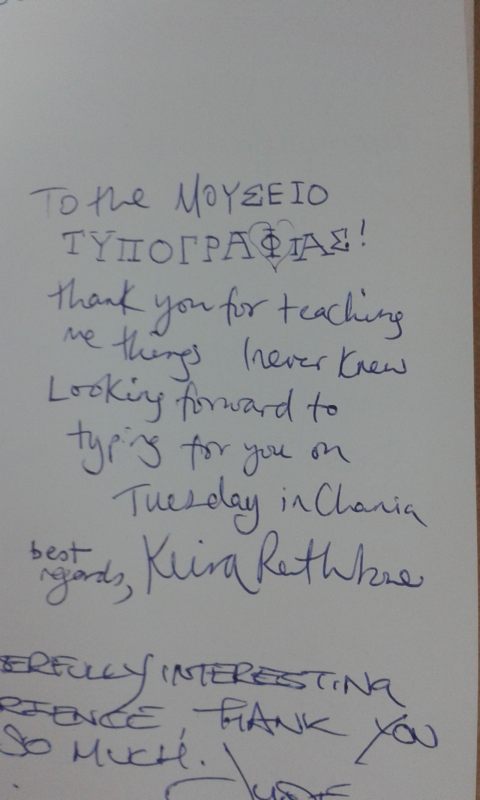 To the ΜΟΥΣΕΙΟ
ΤΥΠΟΓΡΑΦΙΑΣ!
thank you for teaching
me things I never knew
Looking forward to
typing for you on
Tuesday in Chania
best
regards, Keira Rathbone
ERFULLY INTERESTING
RIENCE, THANK YOU
SO MUCH.